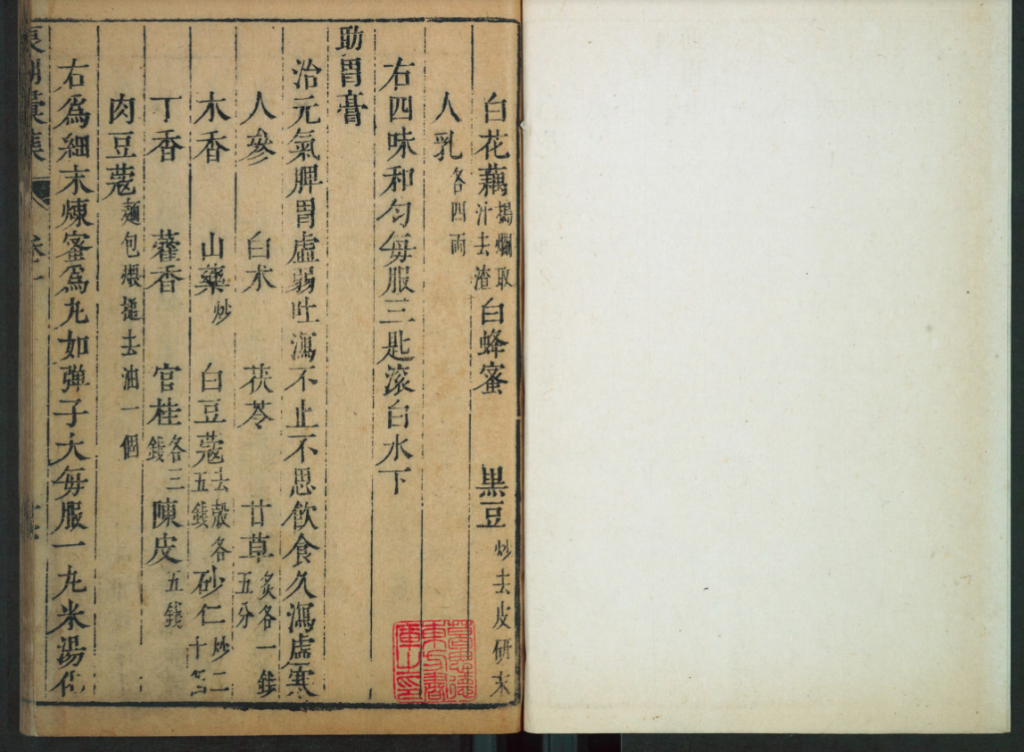 白花藕搗爛取汁去渣 白蜂蜜 黒豆炒去皮研末
人乳各四両
右四味和勻每服三匙滚白水下
助胃膏
治元氣脾胃虛弱吐瀉不止不思飲食久瀉虛寒
人參 白朮 茯苓 甘草炙各一錢五分
木香 山藥炒 白豆蔻去殼各五錢 砂仁炒二十
丁香 藿香 官桂各三錢 陳皮五錢
肉豆蔻麺包煨搥去油一個
右為細末煉蜜為丸如弹子大每服一丸米湯化
集 卷